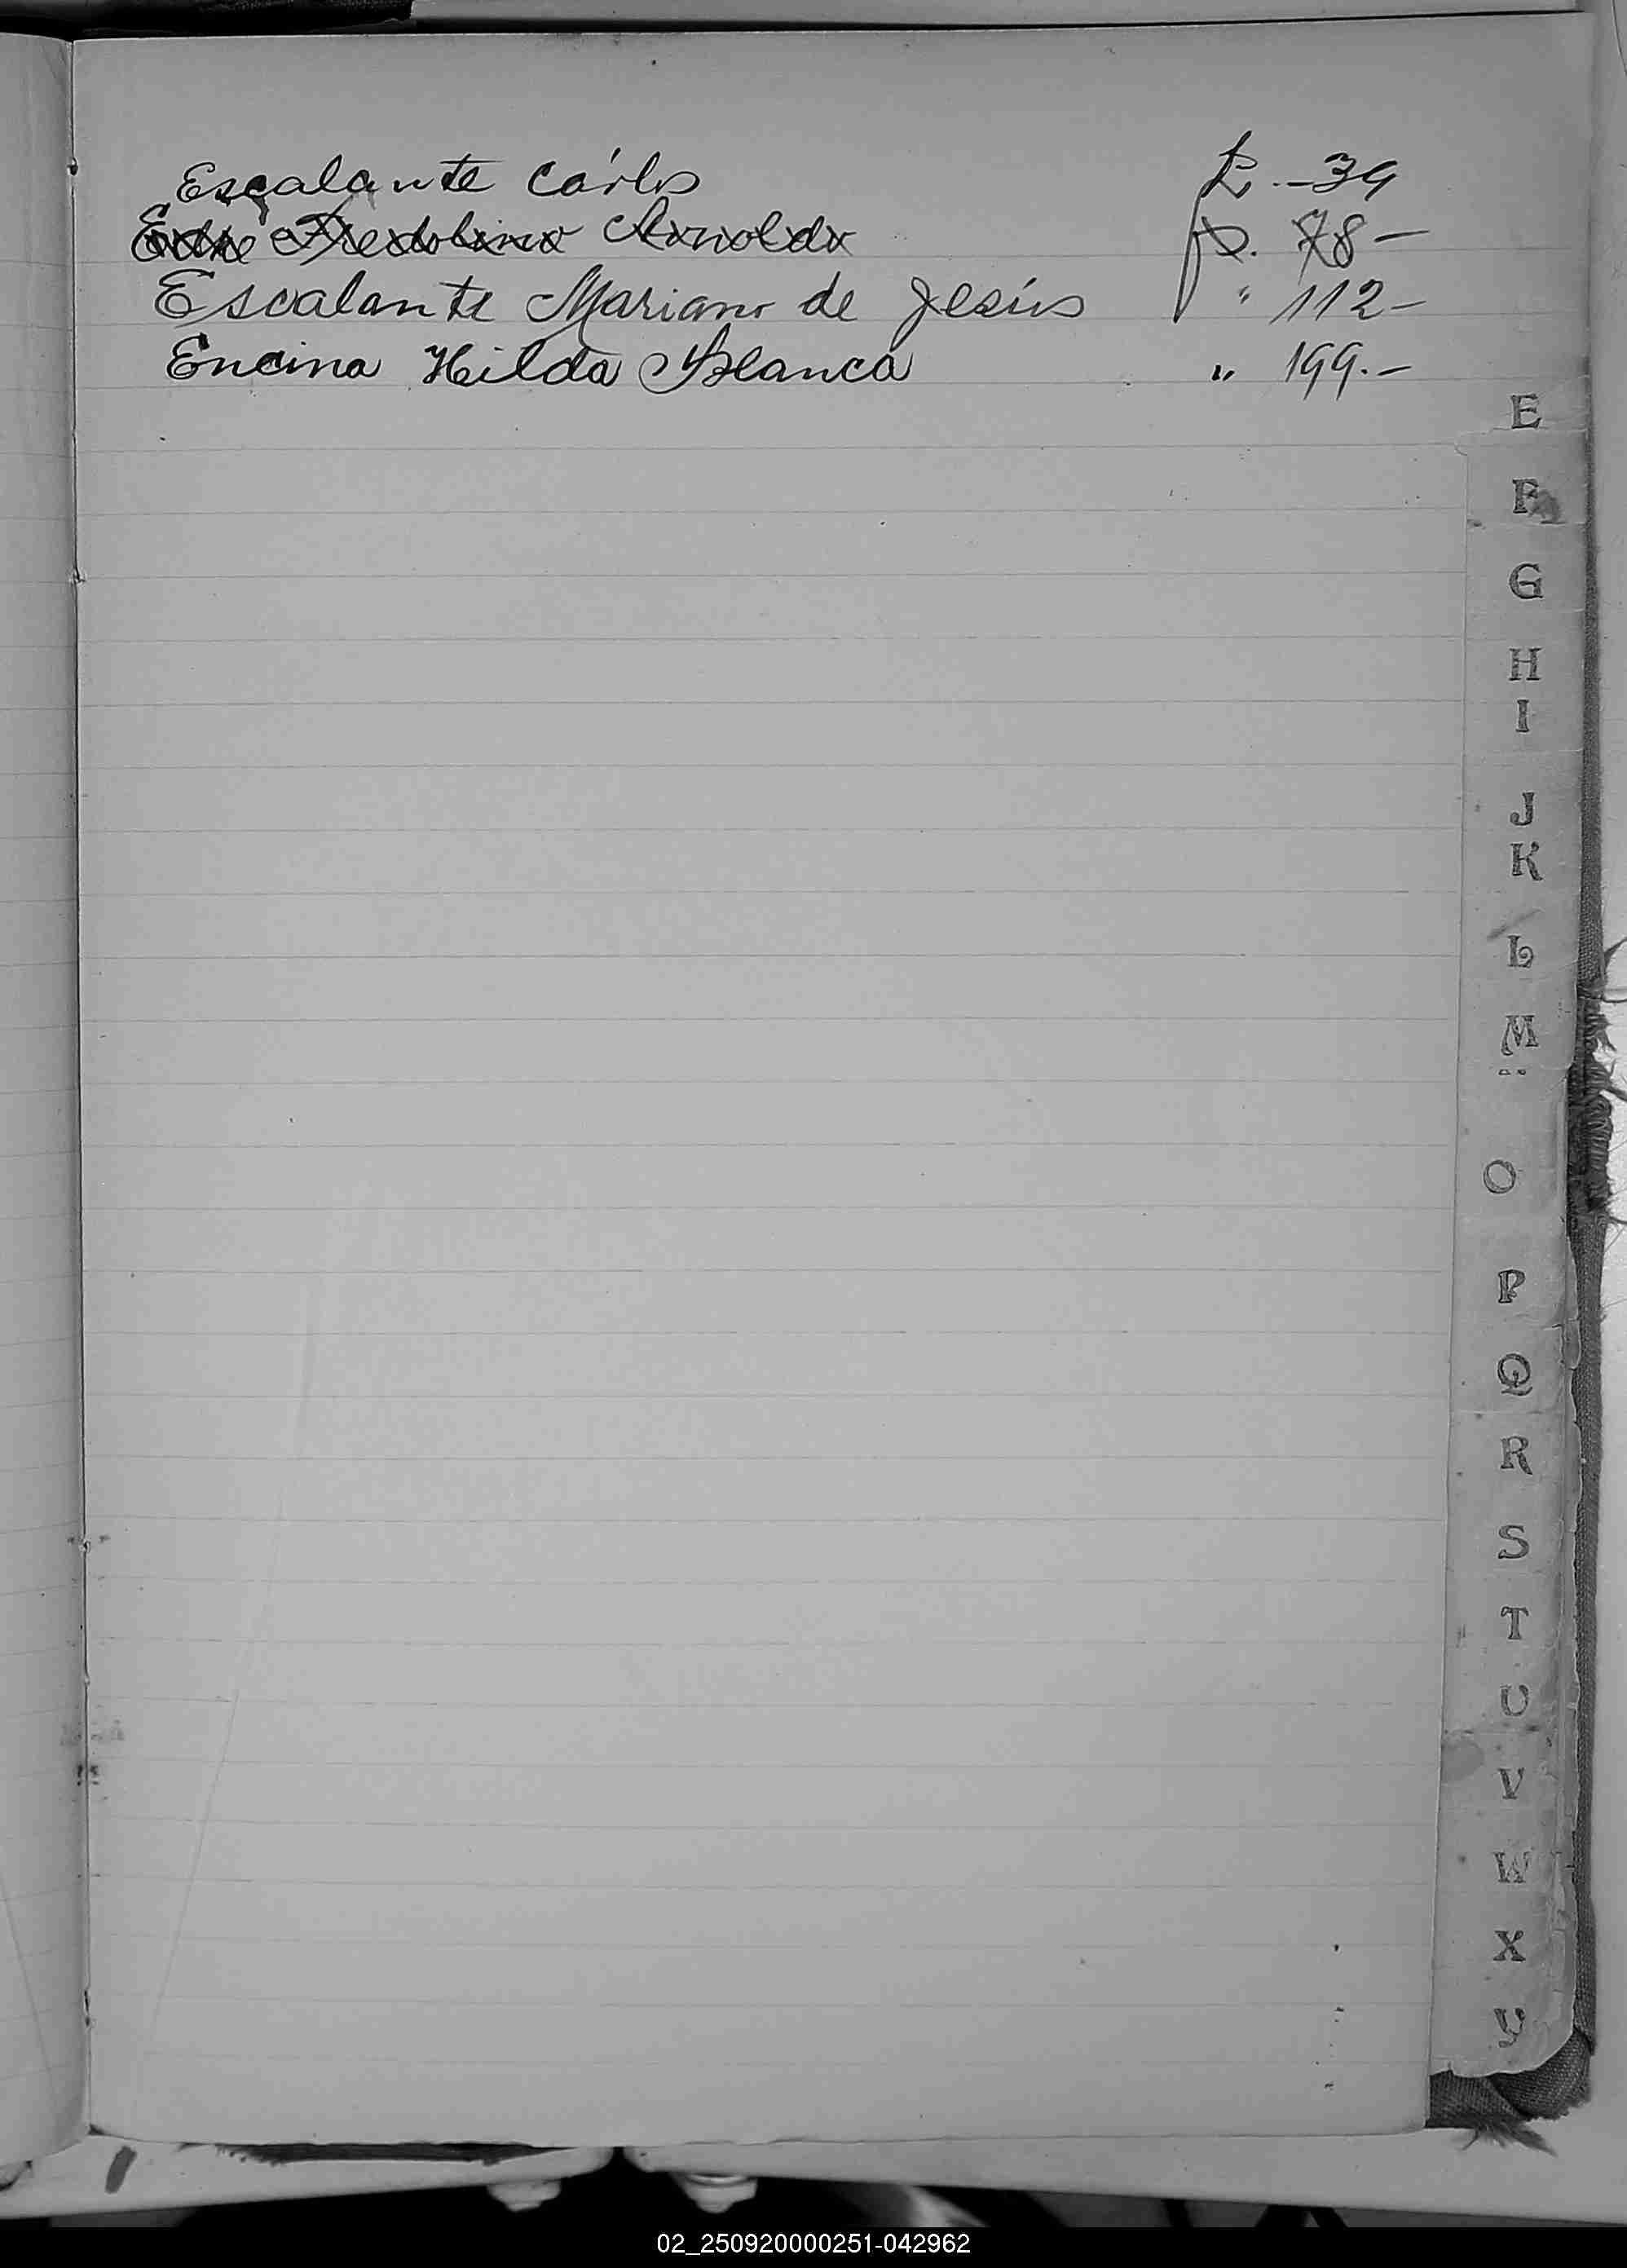 Escalante Cárlos P. - 39
Arnoldo p. 78 -
Escalante Mariano de Jesús " 112 -
Encina Hilda Blanca " 199. -
E
F
G
H
I
J
K
L
M
O
P
Q
R
S
T
U
V
W
X
Y
02_250920000251-042962